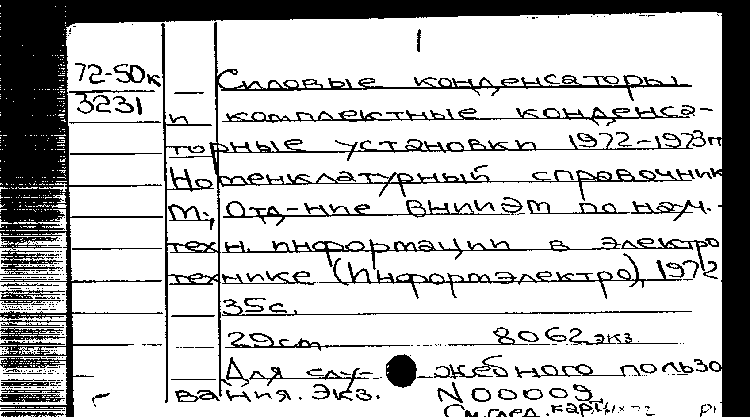 1
72-50к
3231
Силовые конденсаторы
и комплектные конденса-
торные установки 1972-1973г
Номенклатурный справочник
М., Отд-ние ВНИИЭМ по науч.-
техн. информации в электро
технике (Информэлектро), 1972
35с.
29см 8062 экз
Для слу- жебного пользо
вания. Экз. N00009
См. след. карт